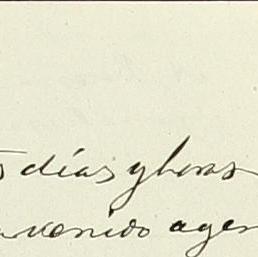 s días y horas
nvenido agen